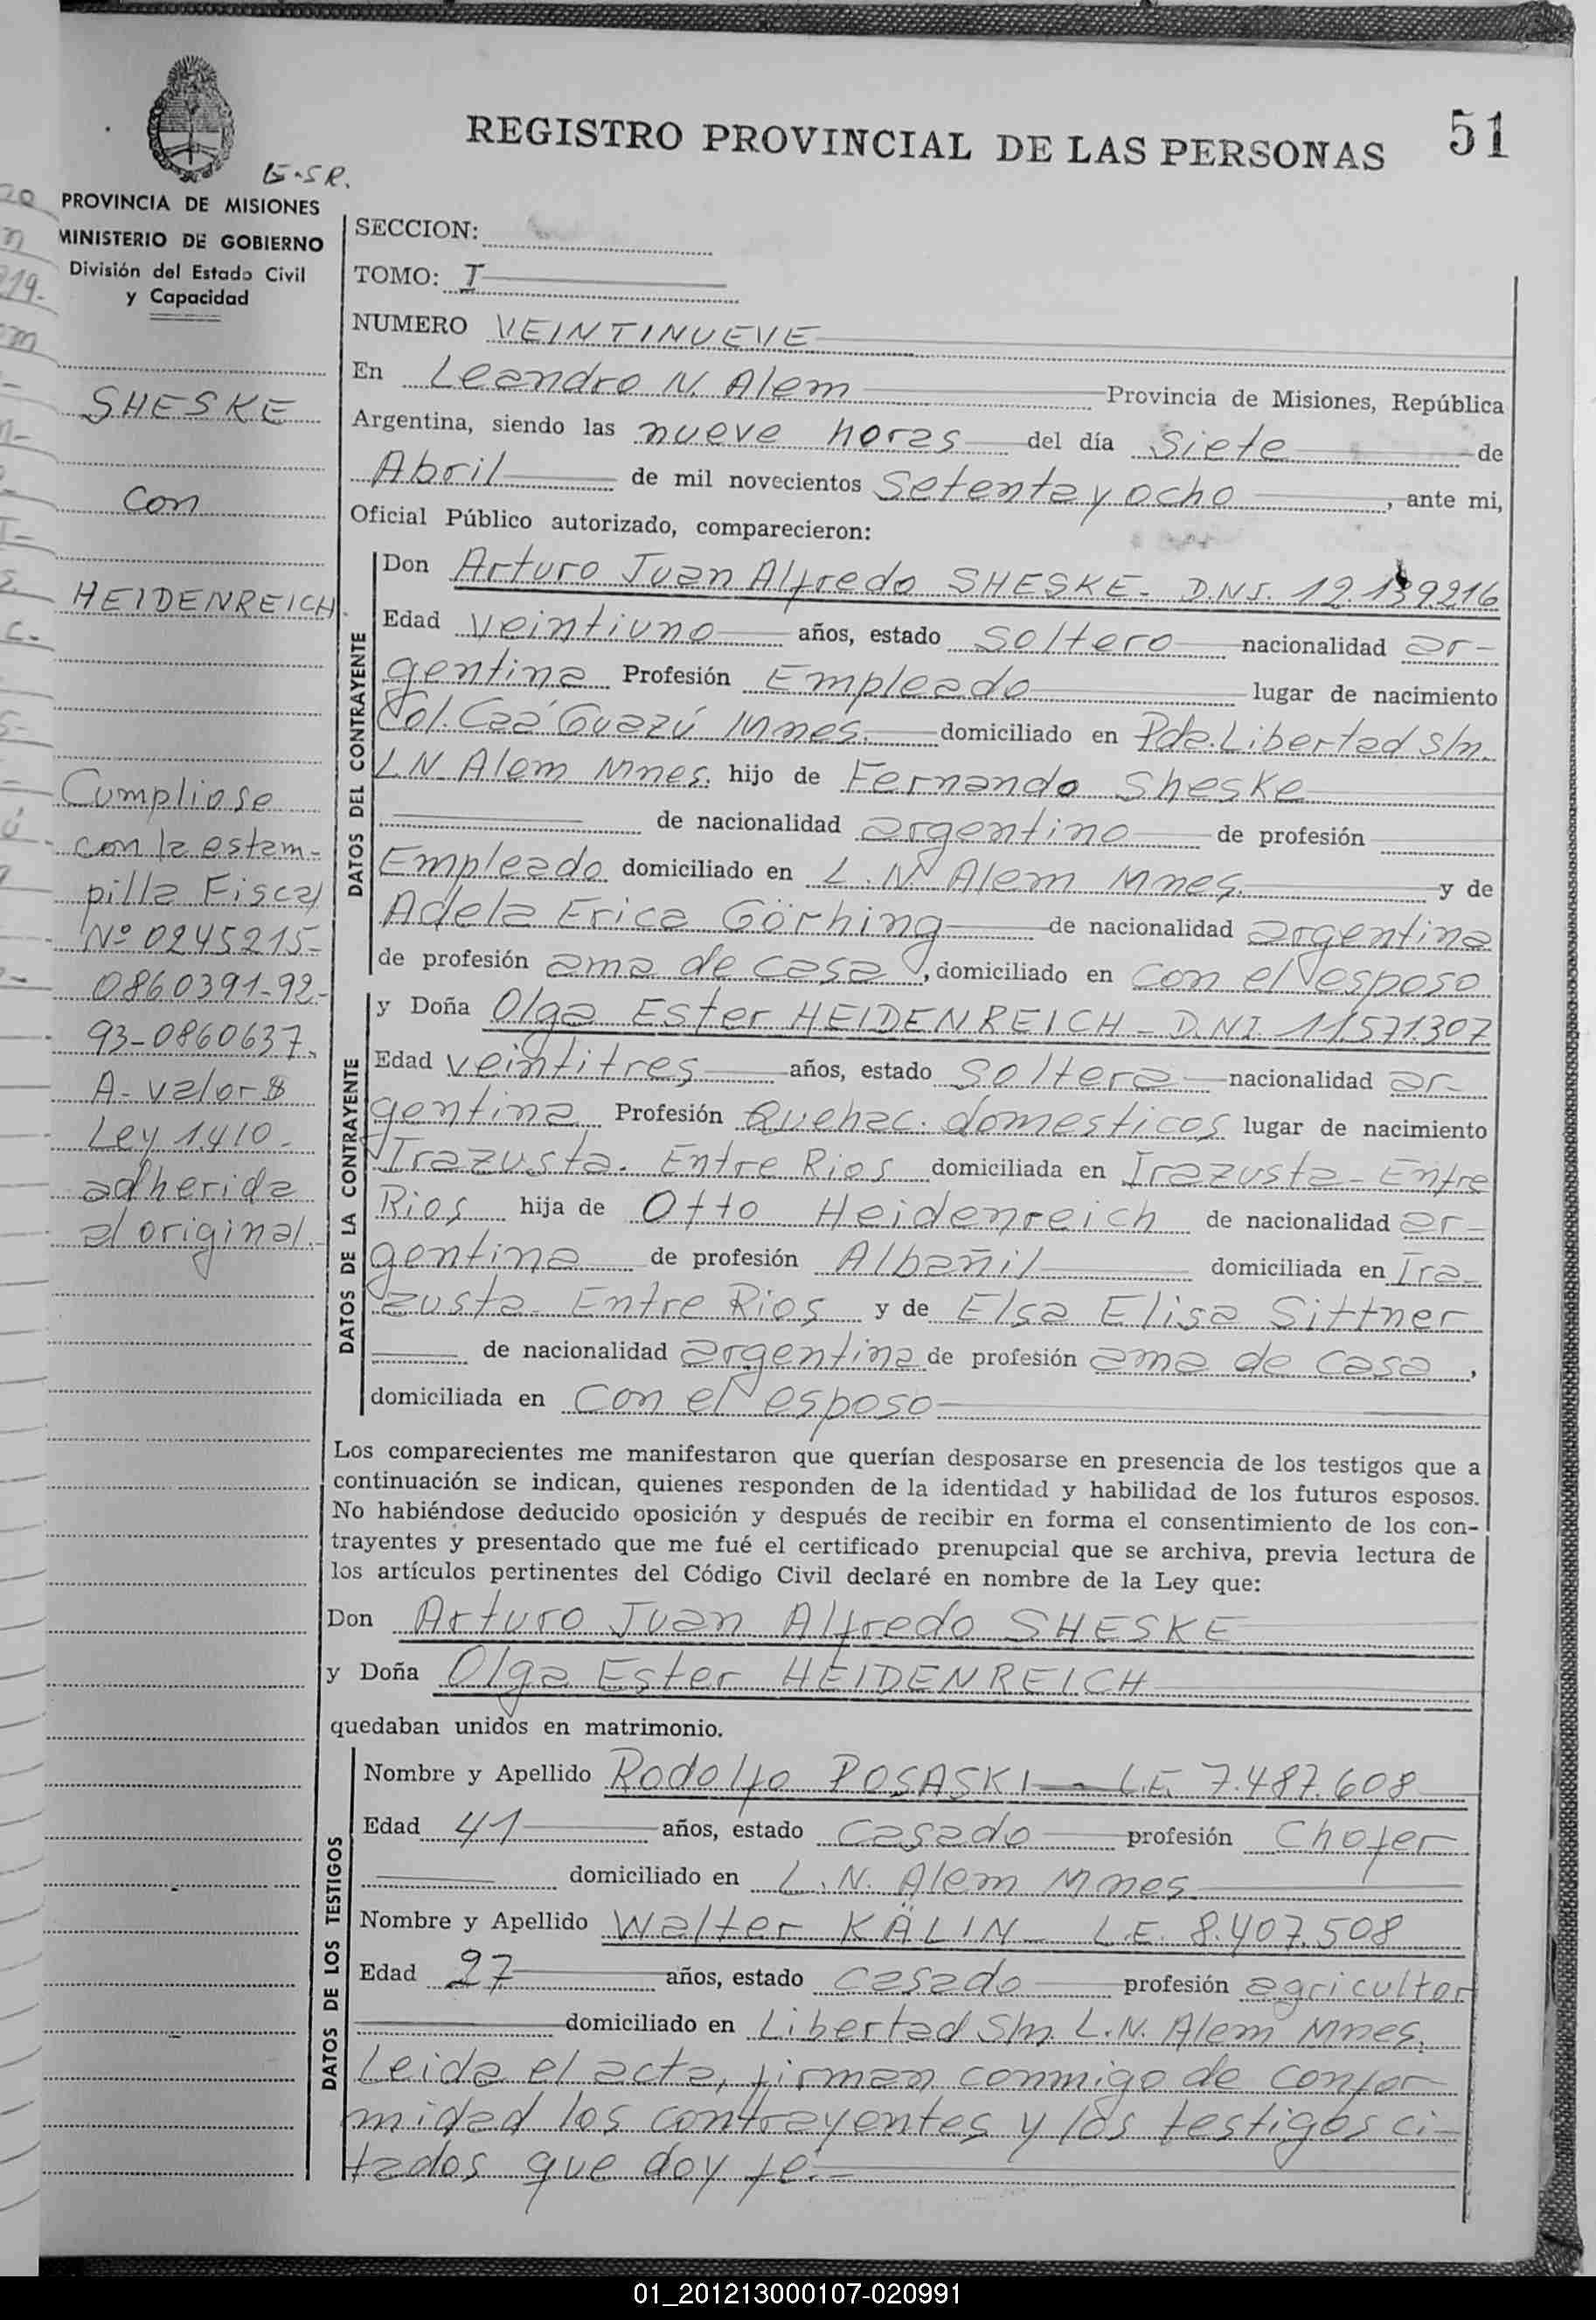 REGISTRO PROVINCIAL DE LAS PERSONAS 51
PROVINCIA DE MISIONES
MINISTERIO DE GOBIERNO
División del Estado Civil
y Capacidad
SHESKE
con
HEIDENREICH
Cumpliose
con la estam-
pilla Fiscal
Nº 0245215-
0860391-92-
93-0860637.
A-valor $
Ley 1410-
adherida
al original.-
SECCION:
TOMO: I
NUMERO VEINTINUEVE
En Leandro N. Alem Provincia de Misiones, República
Argentina, siendo las nueve horas del día Siete de
Abril de mil novecientos Setenta y ocho, ante mi,
Oficial Público autorizado, comparecieron:
DATOS DEL CONTRAYENTE
Don Arturo Juan Alfredo SHESKE- D.N.I. 12.139216
Edad veintiuno años, estado Soltero nacionalidad ar-
gentina Profesión Empleado lugar de nacimiento
Col. Caá Guazú Mnes. domiciliado en Pda. Libertad S/n.
L N Alem Mnes. hijo de Fernando Sheske
de nacionalidad argentino de profesión
Empleado domiciliado en L. N. Alem Mnes. y de
Adela Erica Görhing de nacionalidad argentina
de profesión ama de casa, domiciliado en con el esposo
DATOS DE LA CONTRAYENTE
y Doña Olga Ester HEIDENREICH - D.N.I. 11.571.307
Edad veintitres años, estado Soltera nacionalidad ar-
gentina Profesión Quehac. domesticos lugar de nacimiento
Irazusta. Entre Rios domiciliada en Irazusta-Entre
Rios hija de Otto Heidenreich de nacionalidad ar-
gentina de profesión Albañil domiciliada en Ira-
zusta- Entre Rios y de Elsa Elisa Sittner
de nacionalidad argentina de profesión ama de casa,
domiciliada en con el esposo
Los comparecientes me manifestaron que querían desposarse en presencia de los testigos que a
continuación se indican, quienes responden de la identidad y habilidad de los futuros esposos.
No habiéndose deducido oposición y después de recibir en forma el consentimiento de los con-
trayentes y presentado que me fué el certificado prenupcial que se archiva, previa lectura de
los artículos pertinentes del Código Civil declaré en nombre de la Ley que:
Don Arturo Juan Alfredo SHESKE
y Doña Olga Ester HEIDENREICH
quedaban unidos en matrimonio.
DATOS DE LOS TESTIGOS
Nombre y Apellido Rodolfo POSASKI - L.E. 7.487.608
Edad 41 años, estado Casado profesión Chofer
domiciliado en L. N. Alem Mnes.
Nombre y Apellido Walter KÄLIN- L.E. 8.407.508
Edad 27 años, estado casado profesión agricultor
domiciliado en Libertad S/n. L.N. Alem Mnes.
Leida el acta, firman conmigo de confor
midad los contrayentes y los testigos ci-
tados que doy fe.-
01_201213000107-020991